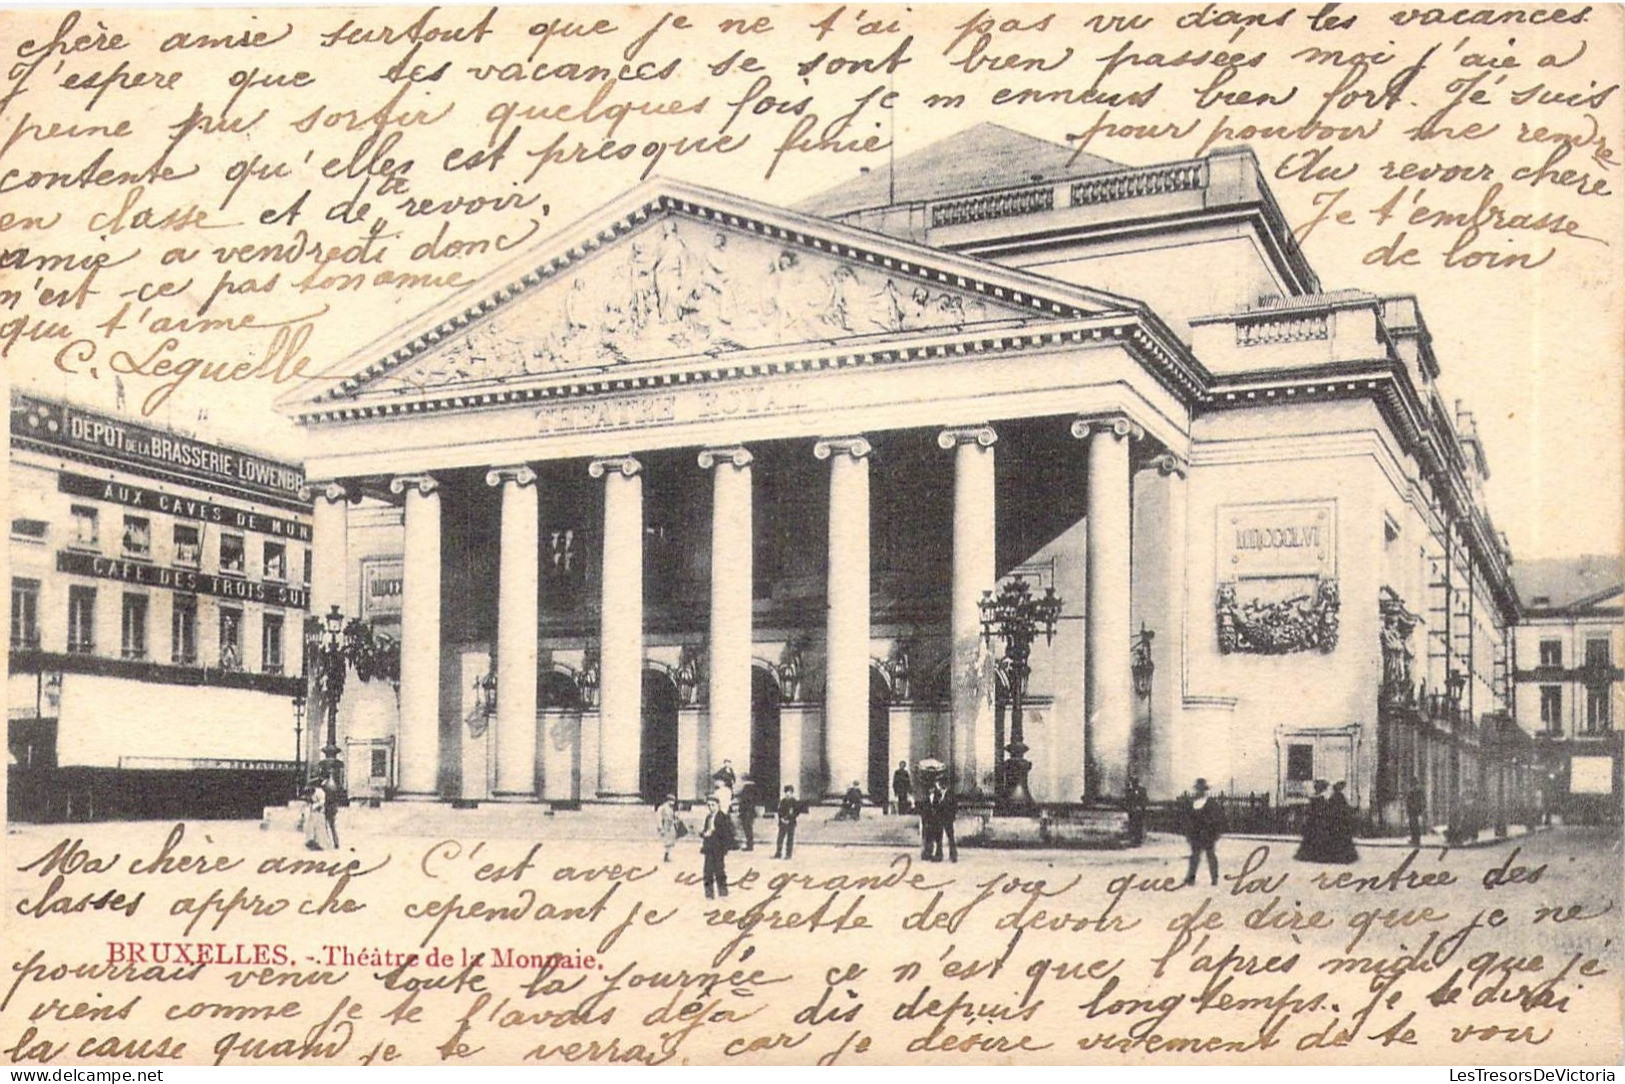 Ma chère amie C'est avec une grande joie que la rentrée des
classes approche cependant je regrette de devoir de dire que je ne
BRUXELLES. - Théâtre de la Monnaie.
pourrais venir toute la journée ce n'est que l'après midi que je
viens comme je te l'avais déjà dis depuis longtemps. Je te dirai
la cause quand je te verrai, car je désire vivement de te voir
chère amie surtout que je ne t'ai pas vu dans les vacances
J'espere que tes vacances se sont bien passées moi j'aie a
peine pu sortir quelques fois je m enneuis bien fort. Je suis
contente qu'elles est presque finie pour pouvoir me rendre
en classe et de te revoir, Au revoir chère
amie a vendredi donc Je t'embrasse
n'est -ce pas ton amie de loin
qui t'aime
C. Leguelle
THEATRE ROYAL
DEPOT DE LA BRASSERIE LOWENBR
AUX CAVES DE MUN
CAFE DES TROIS SUI
MDCCCLVI
LesTresorsDeVictoria